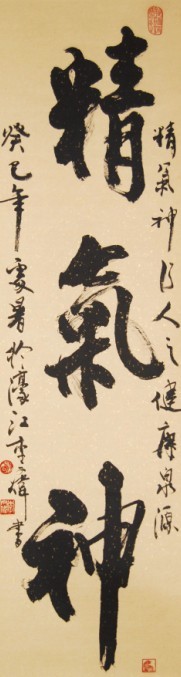 精氣神
精氣神乃人之健康泉源
癸巳年處暑於濠江李偉書